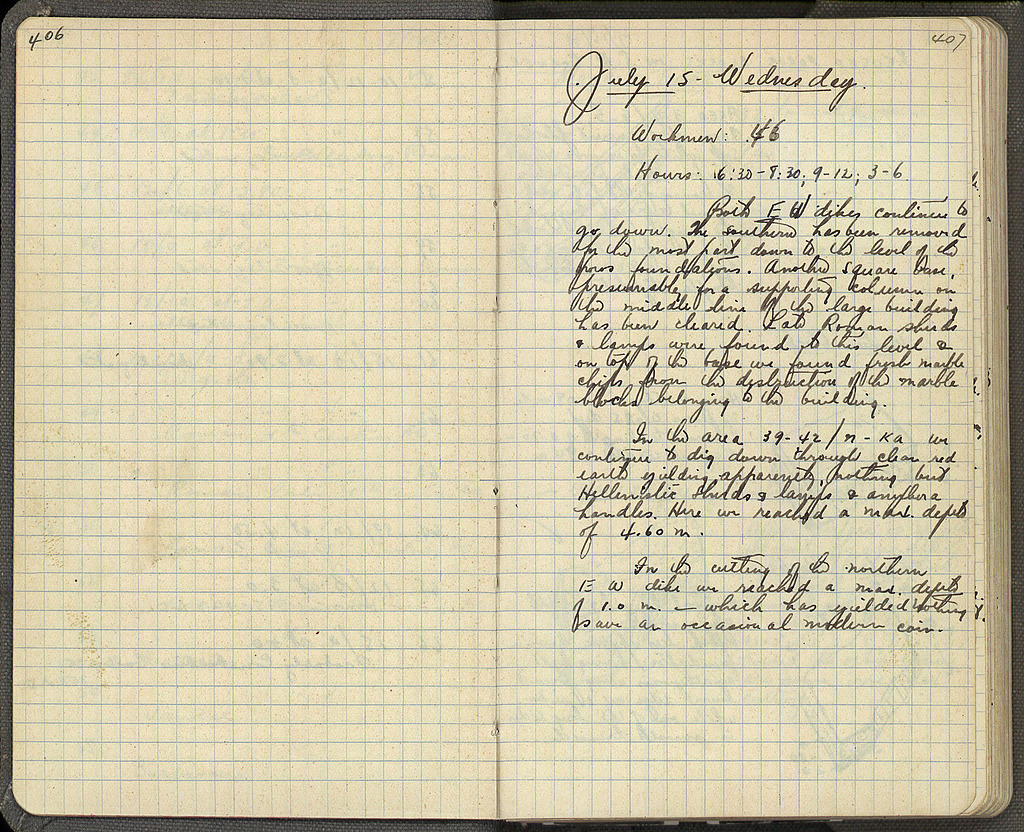 406
407
July 15 - Wednesday.
Workmen: 46
Hours: 6:30-8:30; 9-12; 3-6.
Both E W dikes continue to
go down. The southern has been removed
for the most part down to the level of the
poros foundations. Another square base,
presumably for a supporting column on
the middle line of the large building
has been cleared. Late Roman sherds
& lamps were found to this level &
on top of the base we found fresh marble
chips from the destruction of the marble
blocks belonging to the building.
In the area 39-42/n - κα we
continue to dig down through clean red
earth yielding apparently nothing but
Hellenistic sherds & lamps & amphora
handles. Here we reached a max. depth
of 4.60 m.
In the cutting of the northern
E W dike we reached a max. depth
of 1.0 m. — which has yielded nothing
save an occasional modern coin.